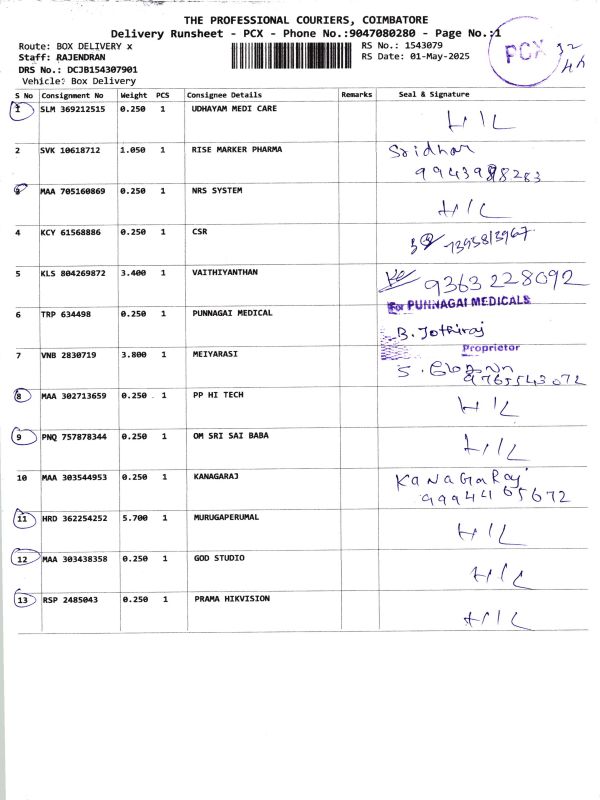 THE PROFESSIONAL COURIERS, COIMBATORE
Delivery Runsheet - PCX - Phone No.:9047080280 - Page No.:1
Route: BOX DELIVERY x RS No.: 1543079
Staff: RAJENDRAN RS Date: 01-May-2025
DRS No.: DCJB154307901
Vehicle: Box Delivery
PCX
S No Consignment No Weight PCS Consignee Details Remarks Seal & Signature
1 SLM 369212515 0.250 1 UDHAYAM MEDI CARE H/L
2 SVK 10618712 1.050 1 RISE MARKER PHARMA Sridhar
3 MAA 705160869 0.250 1 NRS SYSTEM H/L
4 KCY 61568886 0.250 1 CSR
5 KLS 804269872 3.400 1 VAITHIYANTHAN 9363228092
6 TRP 634498 0.250 1 PUNNAGAI MEDICAL For PUNNAGAI MEDICALS
B. Jothiraj
Proprietor
7 VNB 2830719 3.800 1 MEIYARASI
9765543072
8 MAA 302713659 0.250 1 PP HI TECH H/L
9 PNQ 757878344 0.250 1 OM SRI SAI BABA H/L
10 MAA 303544953 0.250 1 KANAGARAJ KANAGARAJ
11 HRD 362254252 5.700 1 MURUGAPERUMAL H/L
12 MAA 303438358 0.250 1 GOD STUDIO H/L
13 RSP 2485043 0.250 1 PRAMA HIKVISION H/L